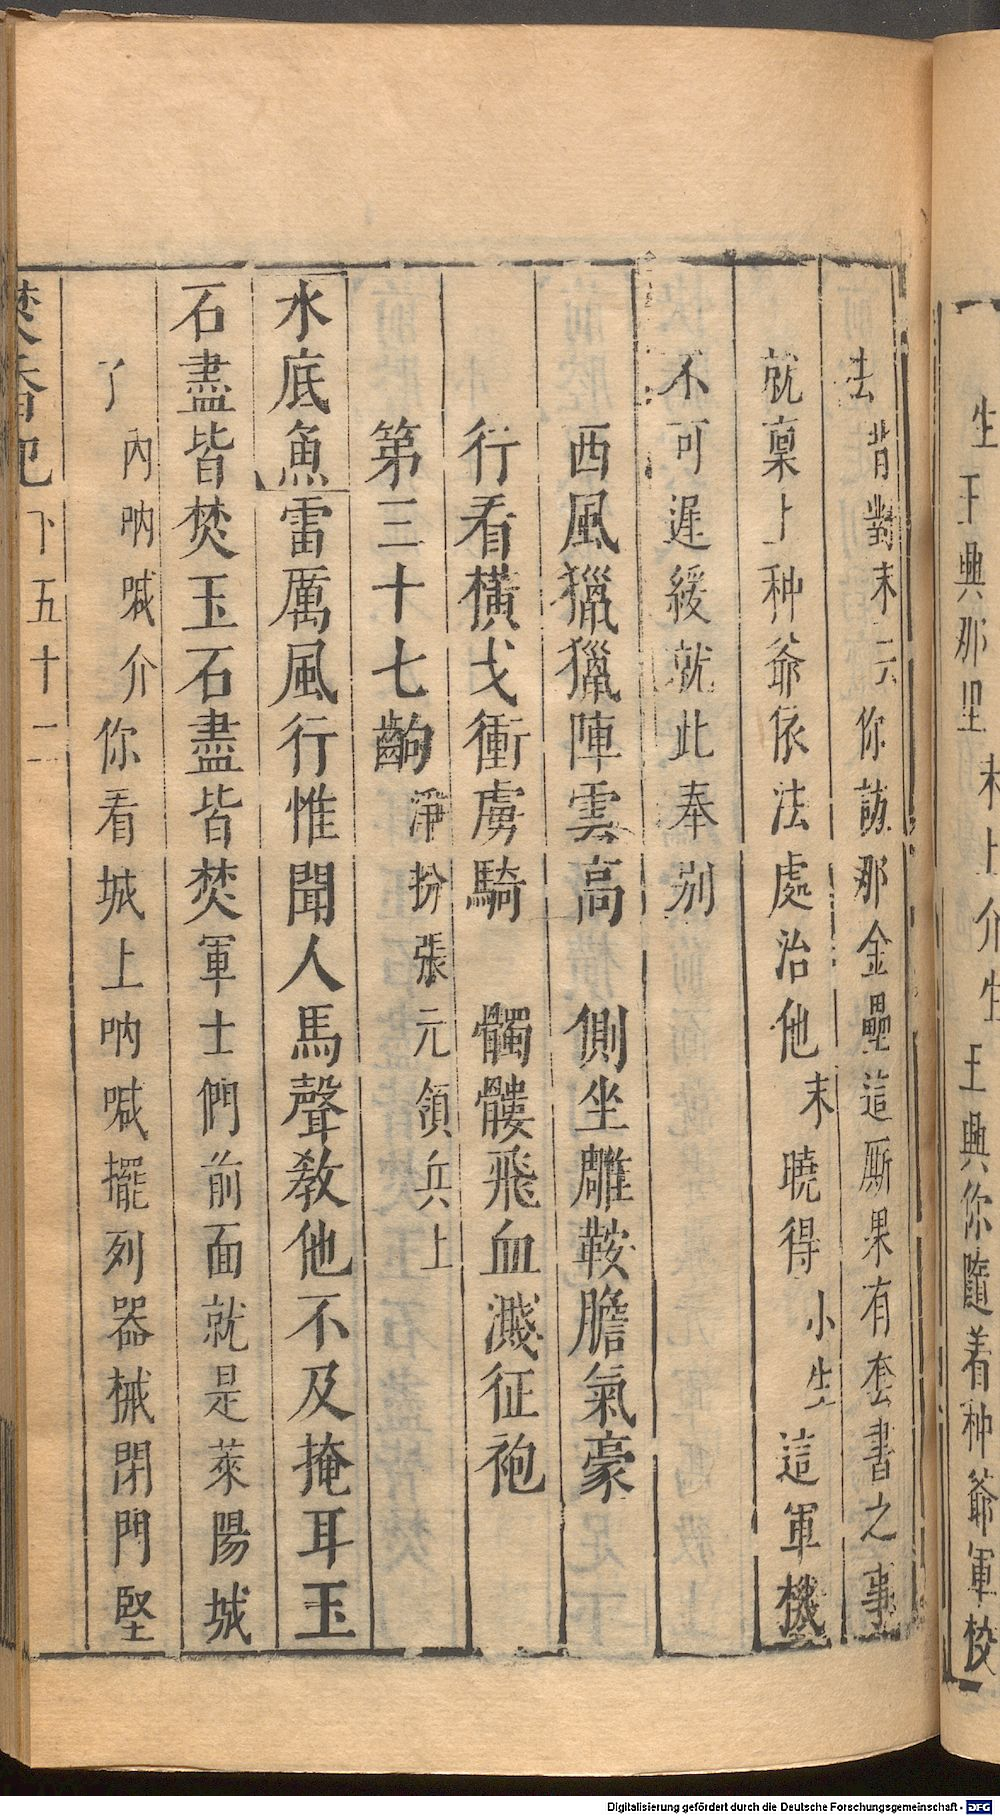 生 王興那里 末上介 生 王興你隨着种爺軍校
去 背對末云 你訪那金壘這厮果有套書之事
就稟上种爺依法處治他 末 曉得 小生 這軍機
不可遲緩就此奉别
西風獵獵陣雲高 側坐雕鞍膽氣豪
行看橫戈衝虜騎 髑髏飛血濺征袍
第三十七齣 淨扮張元領兵上
水底魚 雷厲風行惟聞人馬聲教他不及掩耳玉
石盡皆焚玉石盡皆焚 軍士們前面就是萊陽城
了 內吶喊介 你看城上吶喊擺列器械閉門堅
焚香記 下 五十二
Digitalisierung gefördert durch die Deutsche Forschungsgemeinschaft - DFG